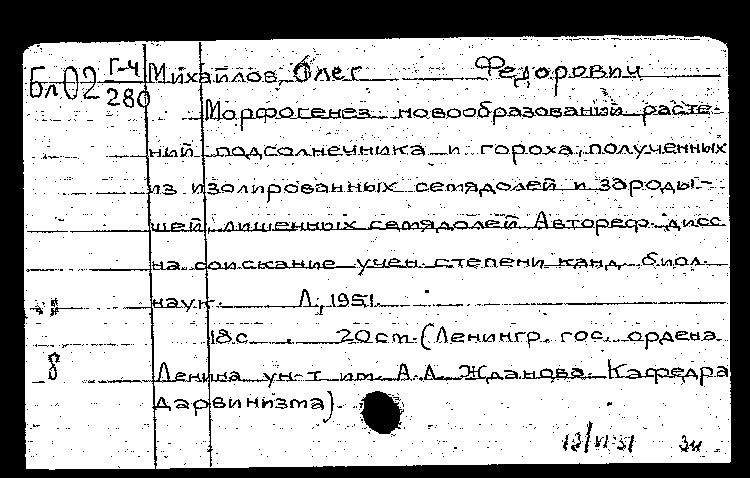 Бл02 Г-4/280
Михайлов, Олег Федорович
Морфогенез новообразований расте-
ний подсолнечника и гороха, полученных
из изолированных семядолей и зароды-
шей, лишенных семядолей Автореф. дисс
на соискание учен. степени канд. биол.
наук. Л., 1951.
18с. 20см. (Ленингр. гос. ордена
Ленина ун-т им. А.А. Жданова. Кафедра
8
дарвинизма).
13/VI-51 Зи